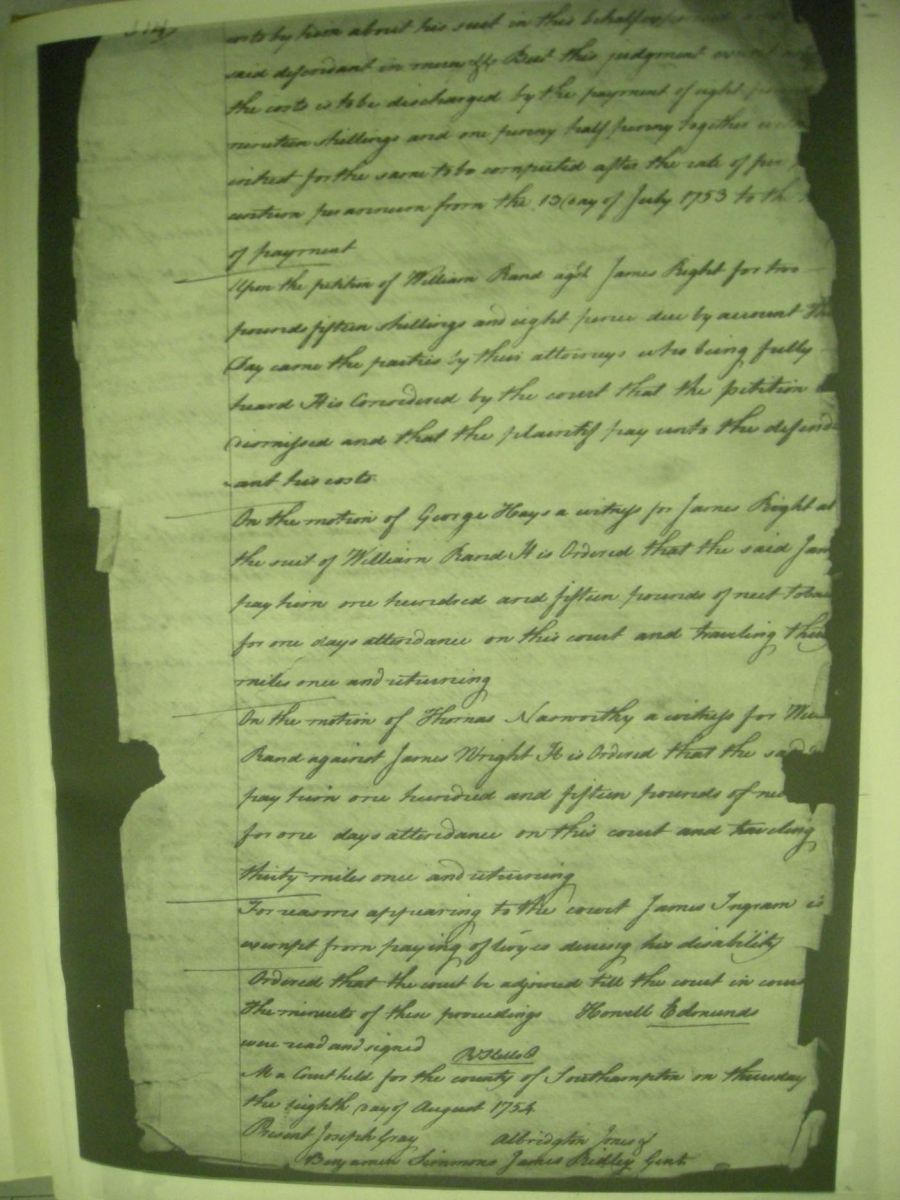 costs by him about his suit in this behalf expended and
said defendant in mercy &c But this judgment
the costs is to be discharged by the payment of eight
nineteen shillings and one penny half penny together
intrest for the same to be computed after the rate of five
centum per annum from the 13 day of July 1753 to the
of payment
Upon the petition of William Rand agst James Right for two
pounds fifteen shillings and eight pence due by account This
Day came the parties by their attorneys who being fully
heard It is Considered by the court that the petition
dismissed and that the plaintif pay unto the defend
ant his costs
On the motion of George Hays a witness for James Right at
the suit of William Rand It is Ordered that the said Jam
pay him one hundred and fifteen pounds of neet tobac
for one days attendance on this court and traveling thirty
miles once and returning
On the motion of Thomas Nasworthy a witness for Wil
Rand against James Wright It is Ordered that the said
pay him one hundred and fifteen pounds of nee
for one days attendance on this court and traveling
thirty miles once and returning
For reasons appearing to the court James Ingram is
exempt from paying of levyes during his disability
Ordered that the court be adjorned till the court in cours
The minutes of these proceedings Howell Edmunds
were read and signed
At a Court held for the county of Southampton on thursday
the Eighth day of August 1754
Present Joseph Gray Albridgton Jones
Benjamin Simmons James Ridley Gent